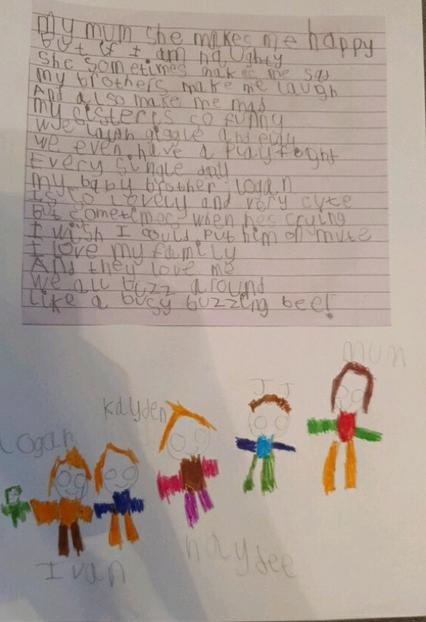 my mum she makes me happy
But if I am naughty
She sometimes makes me sad
my brothers make me laugh
And also make me mad
my sister is so funny
we laugh giggle and play
we even have a playfight
Every single day
my baby brother logan
Is so lovely and very cute
But sometimes when hes crying
I wish I could put him on mute
I love my family
And they love me
we all buzz around
Like a busy buzzing bee!
mum
JJ
kayden
Logan
Ivan
haydee